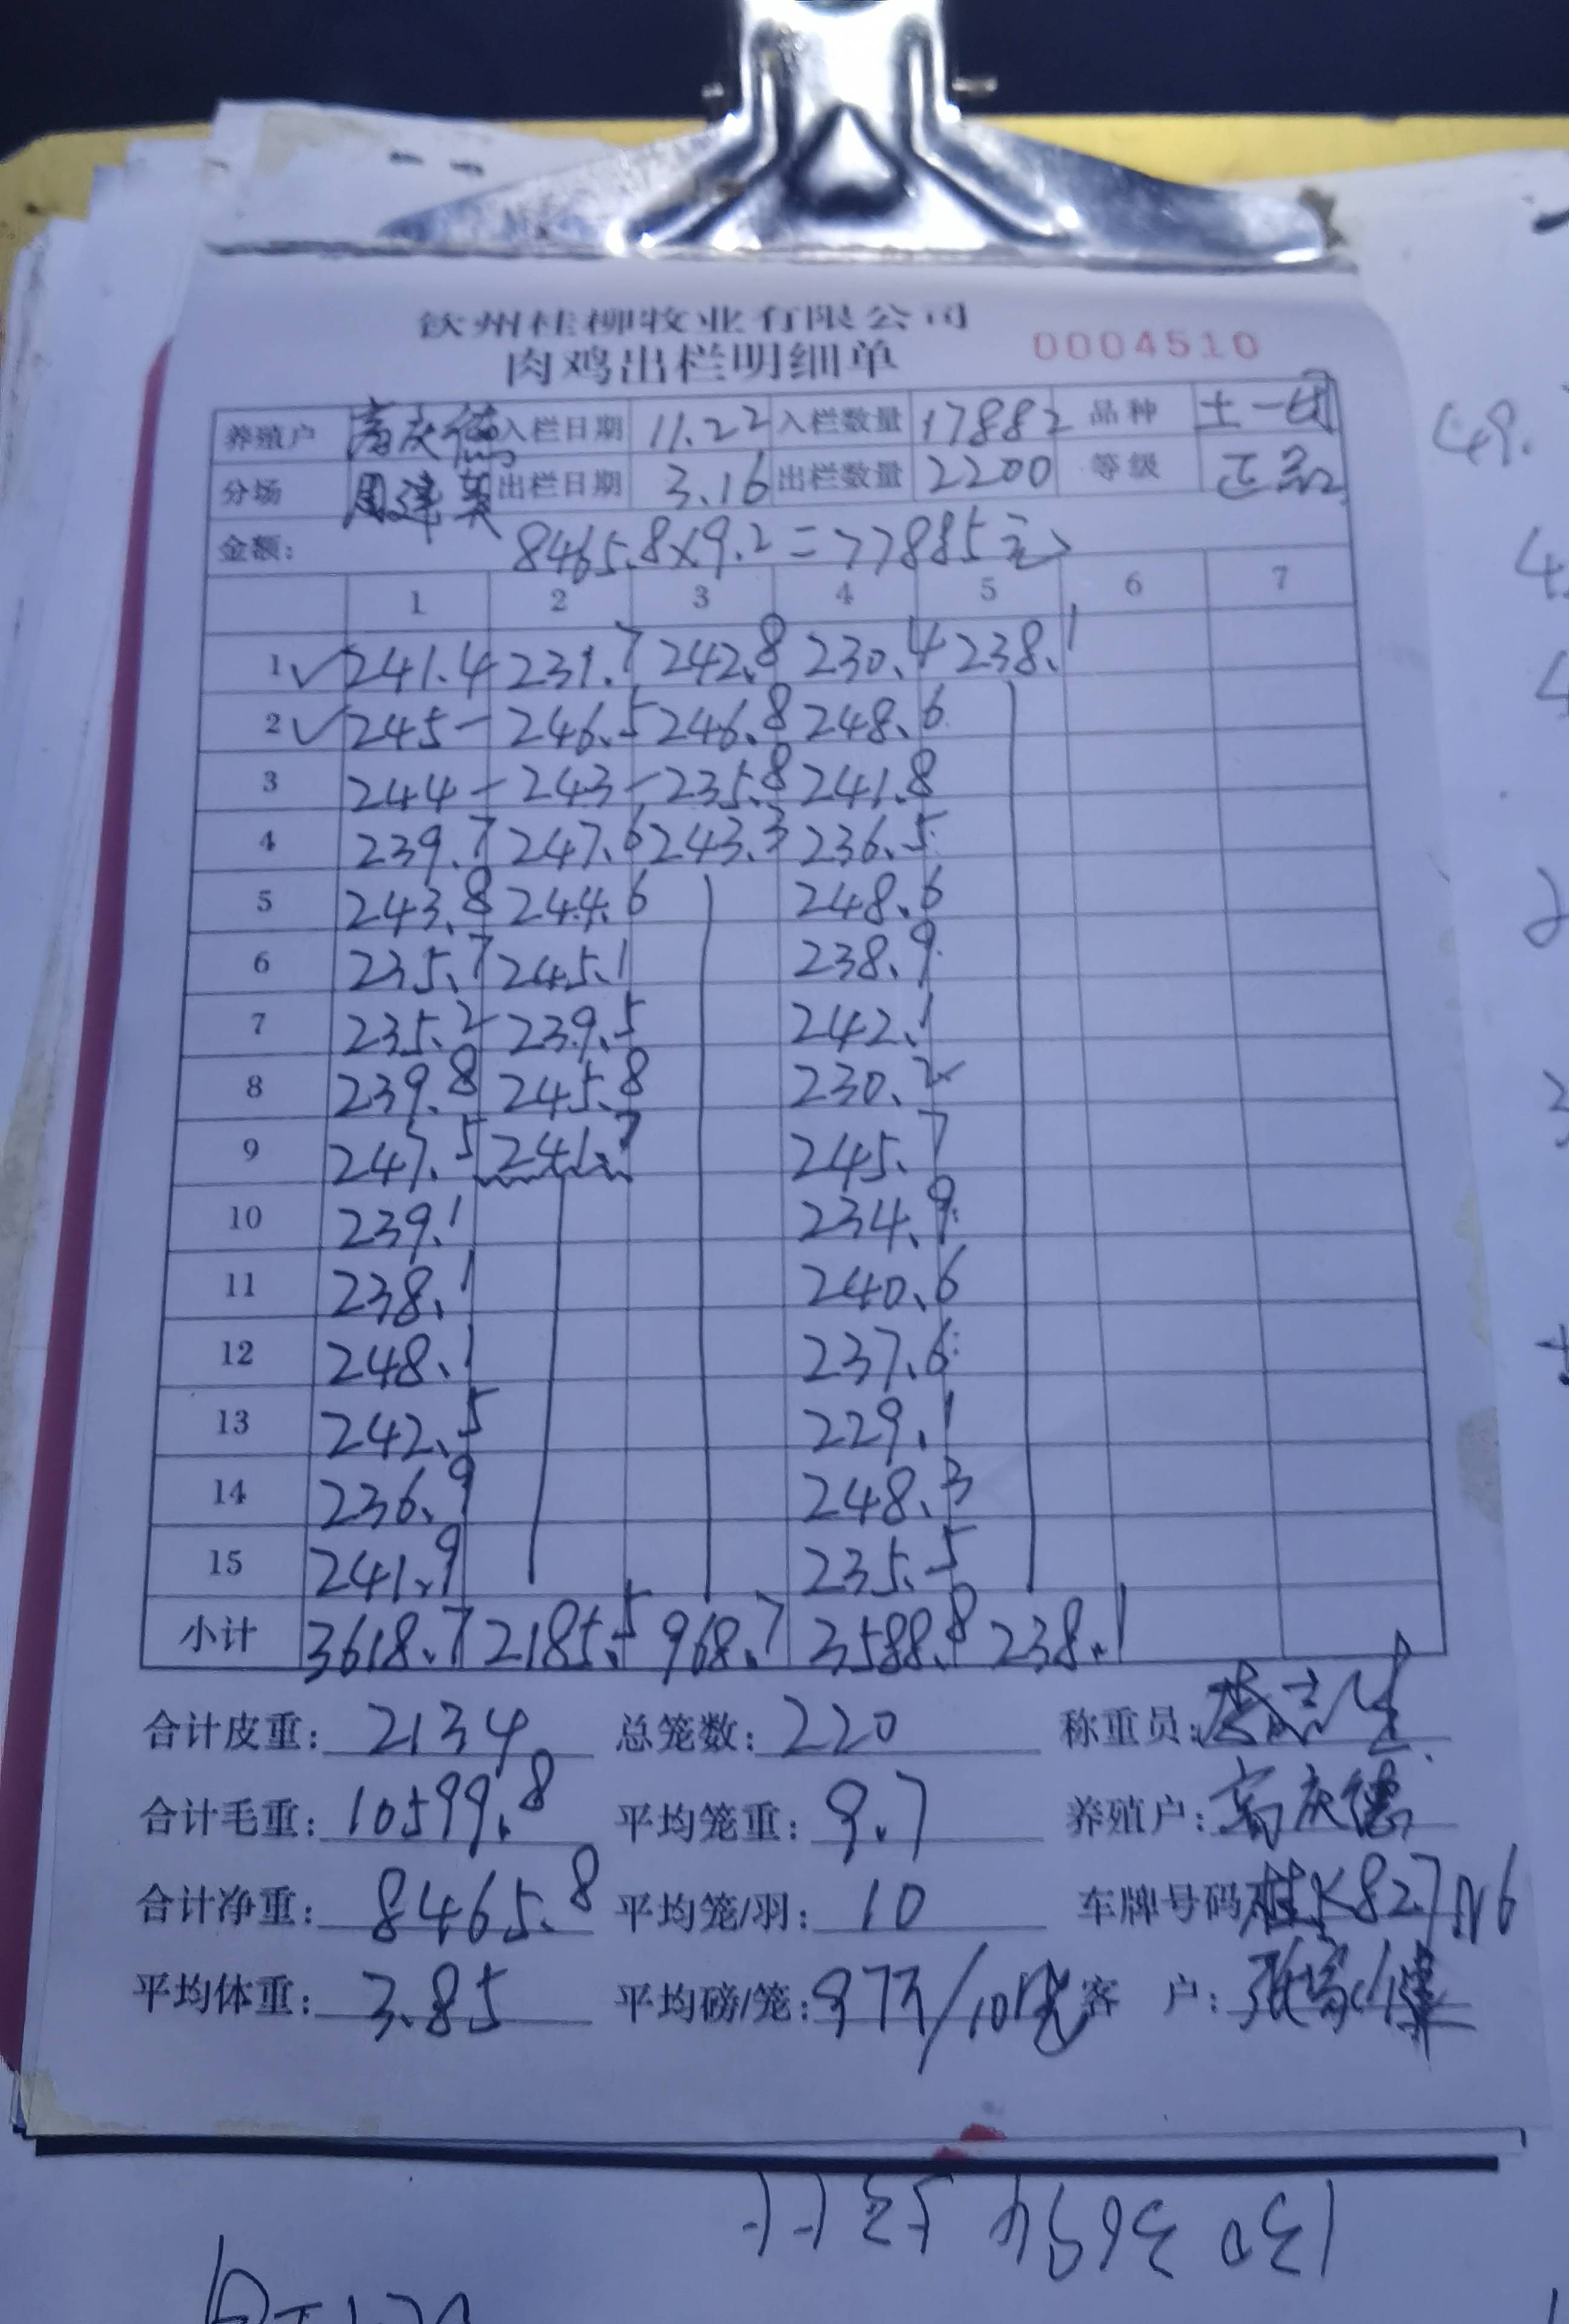 钦州桂柳牧业有限公司
肉鸡出栏明细单 0004510
养殖户 高庆德 入栏日期 11.22 入栏数量 17882 品种 土一
分场 周建英 出栏日期 3.16 出栏数量 2200 等级 正品
金额: 8465.8×9.2=77885元
1 2 3 4 5 6 7
1 ✓ 241.4 231.7 242.8 230.4 238.1
2 ✓ 245- 246.5 246.8 248.6
3 244- 243- 235.8 241.8
4 239.7 247.6 243.3 236.5
5 243.8 244.6 248.6
6 235.7 245.1 238.9
7 235.2 239.5 242.1
8 239.8 245.8 230.2
9 247.5 241.7 245.7
10 239.1 234.9
11 238.1 240.6
12 248.1 237.6
13 242.5 229.1
14 236.9 248.3
15 241.9 235.5
小计 3618.7 2185.5 968.7 3588.8 238.1
合计皮重: 2134 总笼数: 220 称重员:
合计毛重: 10599.8 平均笼重: 9.7 养殖户: 高庆德
合计净重: 8465.8 平均笼/羽: 10 车牌号码 桂K827N6
平均体重: 3.85 平均磅/笼: 97只/10 客 户: 张家